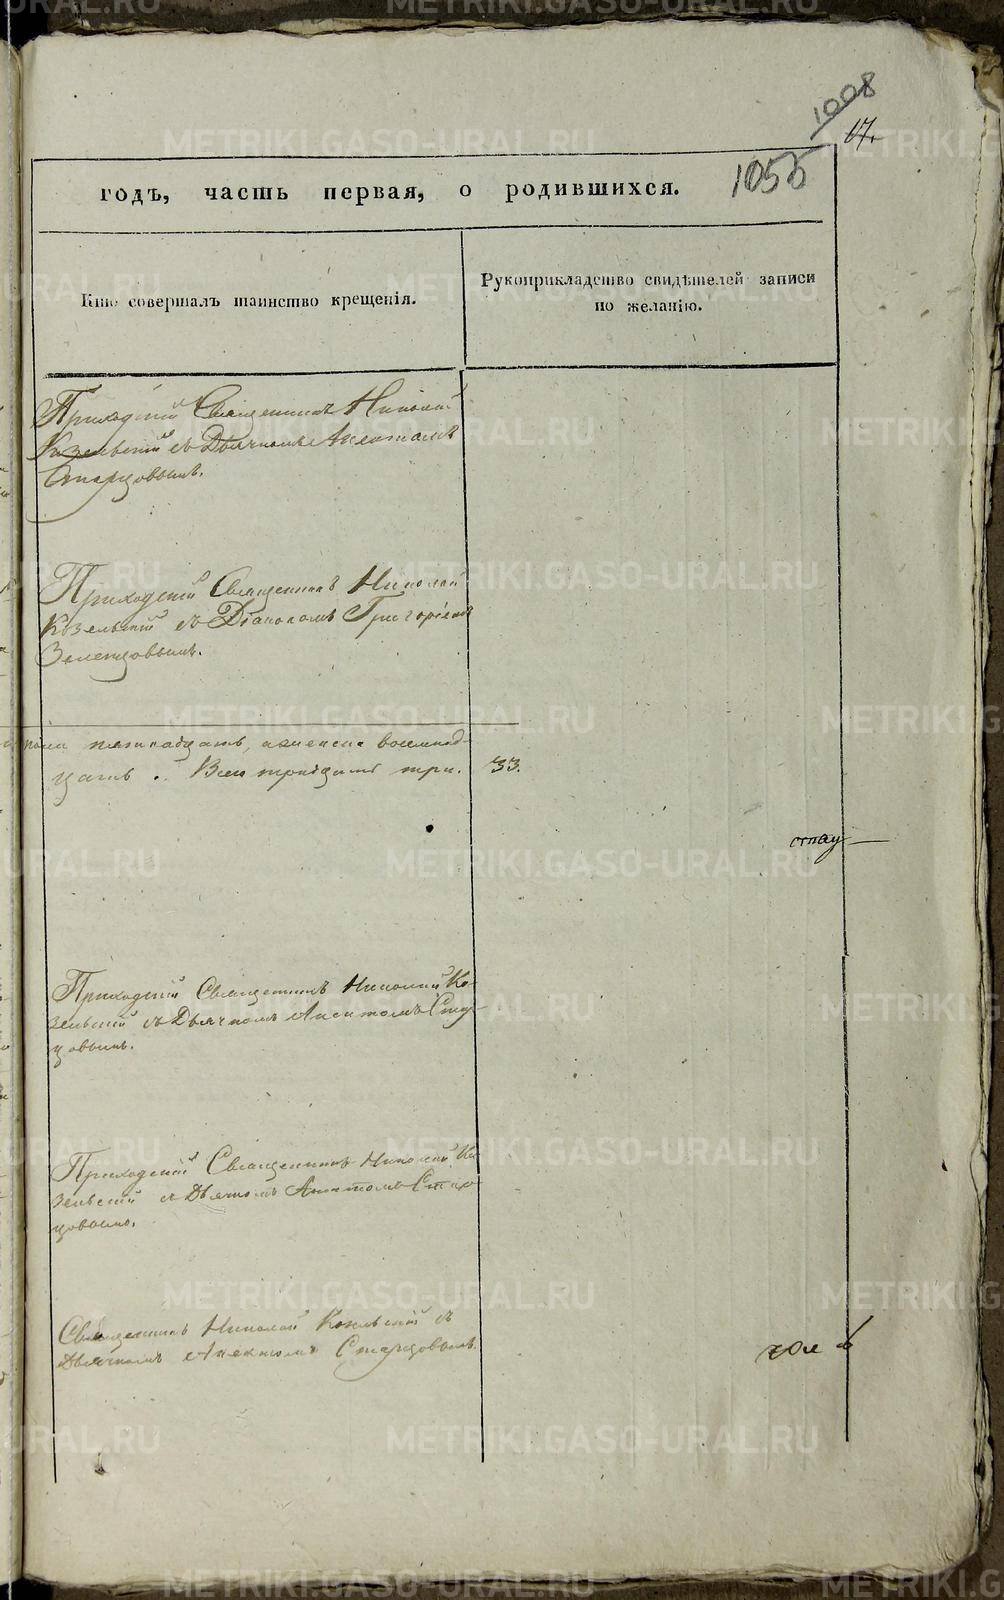 1008
17.
1055
годъ, часть первая, о родившихся.
Кто совершалъ таинство крещенія.
Рукоприкладство свидѣтелей записи
по желанію.
Приходскій Священникъ Николай
Козельскій съ Дьячкомъ Анектомъ
Старцовымъ.
Приходскій Священникъ Николай
Козельскій съ Діакономъ Григоріемъ
Зеленцовымъ.
пола пятнадцать, а женска восемнад-
цать. Всего тридцать три. 33.
Приходскій Священникъ Николай Ко-
зельскій съ Дьячкомъ Стар-
цовымъ.
Приходскій Священникъ Николай Ко-
зельскій съ Дьячкомъ Стар-
цовымъ.
Священникъ Николай Козельскій съ
Дьячкомъ Анектомъ Старцовымъ.
METRIKI.GASO-URAL.RU